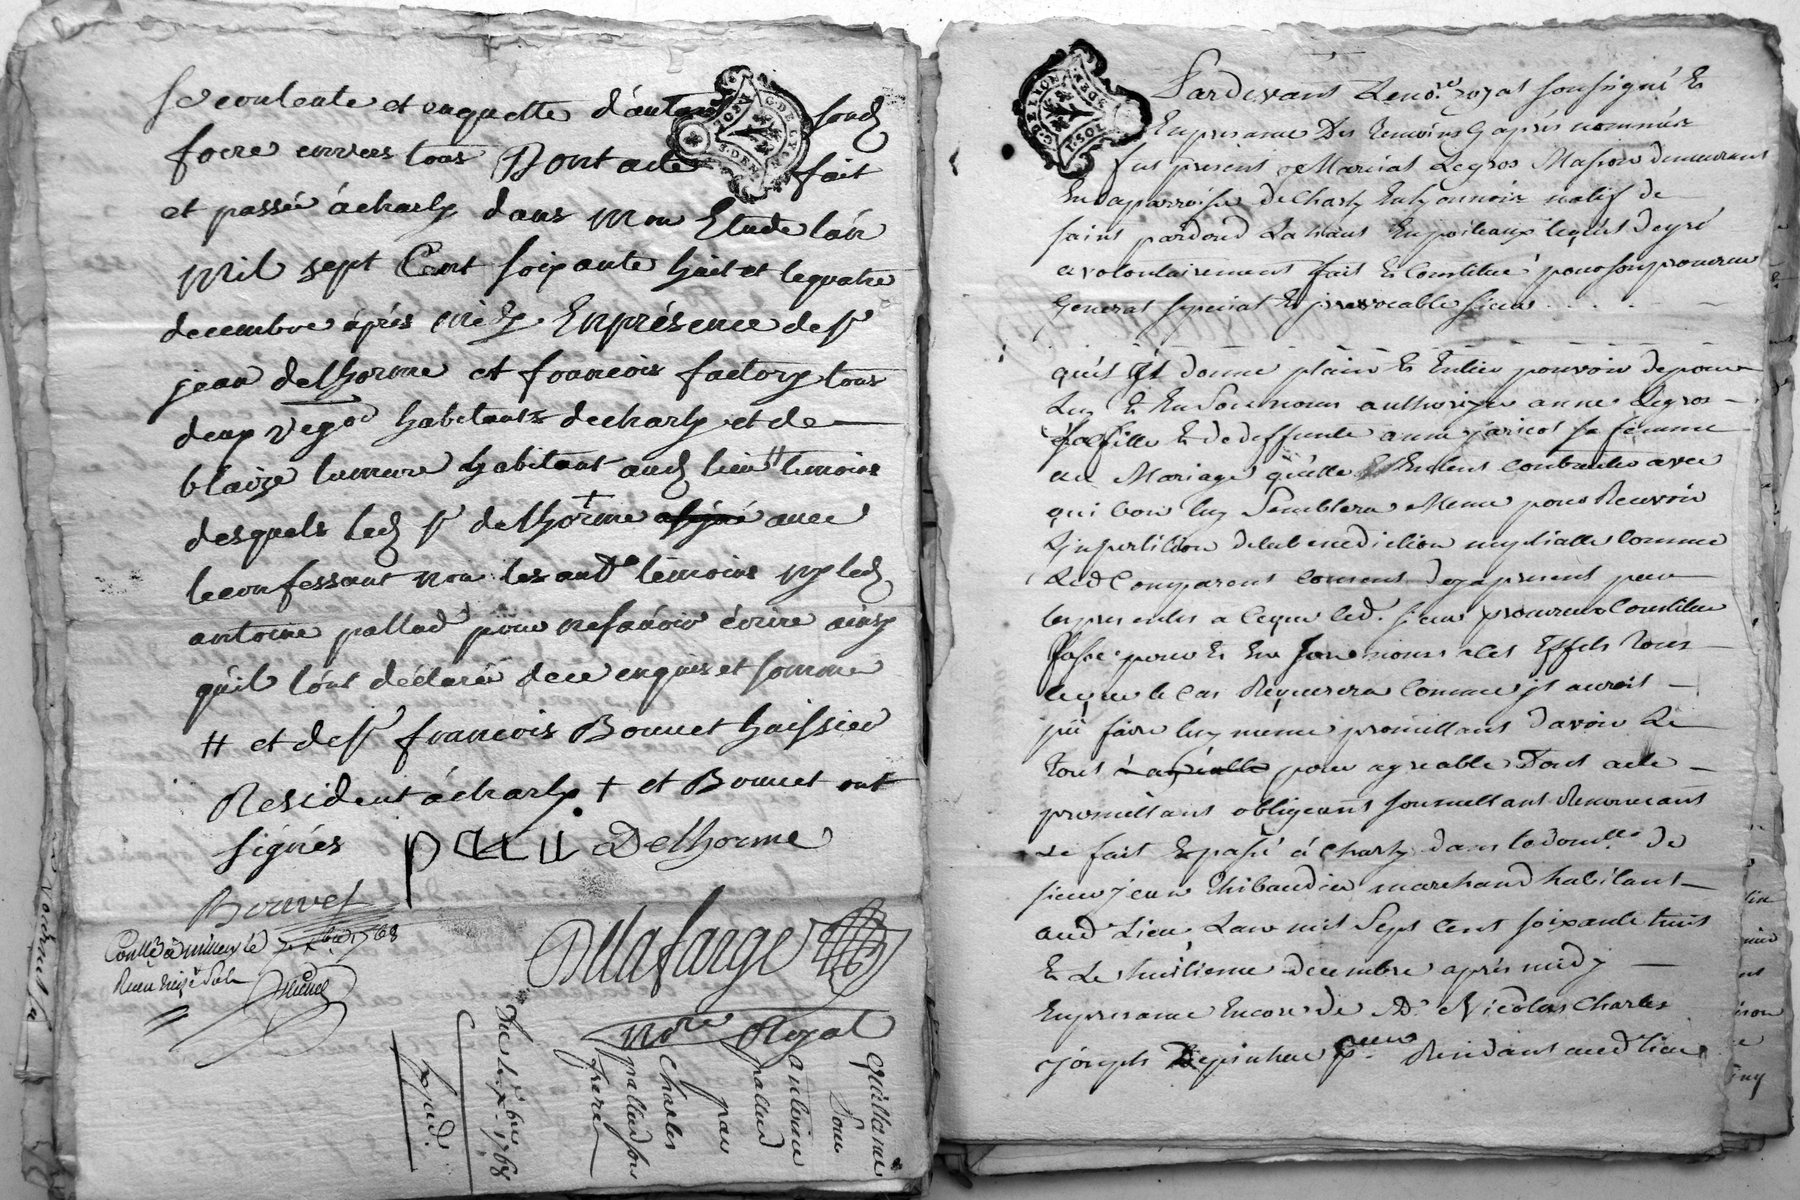 se contente et enquette d'autant sond
foere envers tous Dont acte fait
et passé à charly dans mon Etude l'an
mil sept Cent soixante huit et le quatre
decembre après midy En présence de sr
jean delhorme et francois factory tous
deux vign habitants de charly et de
blaize lumure habitant aud lieu # temoins
desquels led sr delhorme + a signé avec
le confessant non les aud temoins ny led
antoine pallud pour ne savoir écrire ainsy
qu'il l'ont déclaré de ce enquis et sommé
# et de sr francois Bouvet huissier
Resident à charly + et Bouvet ont
signés Delhorme
Bouvet
Conllé à millery le 7 xbre 1768
Reçu treize sols
Dellafarge
Nore Royal
Guillaume
Antoine
pallud
par
Charles
pallud son
frere
Du 4 xbre 1768
Exped.
G. DE LYON
Pardevant Le no.re royal soussigné Et
En presance Des temoins Cy après nommés
fut present Marcial Legros Masson demeurant
En la parroisse de Charly En lyonnois natif de
saint pardoud La En poiteaux lequel de gré
a volontairement fait Et Constitué pour son procureur
General special Et jrrevocable sieur . . . .
quel il donne plain Et Entier pouvoir de pour
Luy Et En Son nom authorizer anne Legros
sa fille Et de deffunte anne jaricot sa femme
au Mariage qu'elle Entent Contracter avec
qui bon luy Semblera Meme pour Recevoir
L'jnpartition de la benediction nuptialle Comme
Led Comparant Consent des a present par
les presentes a Ce que led. sieur procureur Constitué
fasse pour Et En Son nom a Cet Effet Tout
Ce que le Cas Requerera Comme jl auroit
pû faire luy meme promettant d'avoir Le
tout pour agreable Dont acte
promettant obligeant soumettant Renonceant
Le fait Et passé à Charly dans le dom.lle de
sieur jean Thibaudier marchand habitant
aud Lieu L'an mil Sept Cent soixante huit
Et Le huitieme decembre après midy
En presance Encore de Sr Nicolas Charles
joseph Depinhac Residant aud lieu